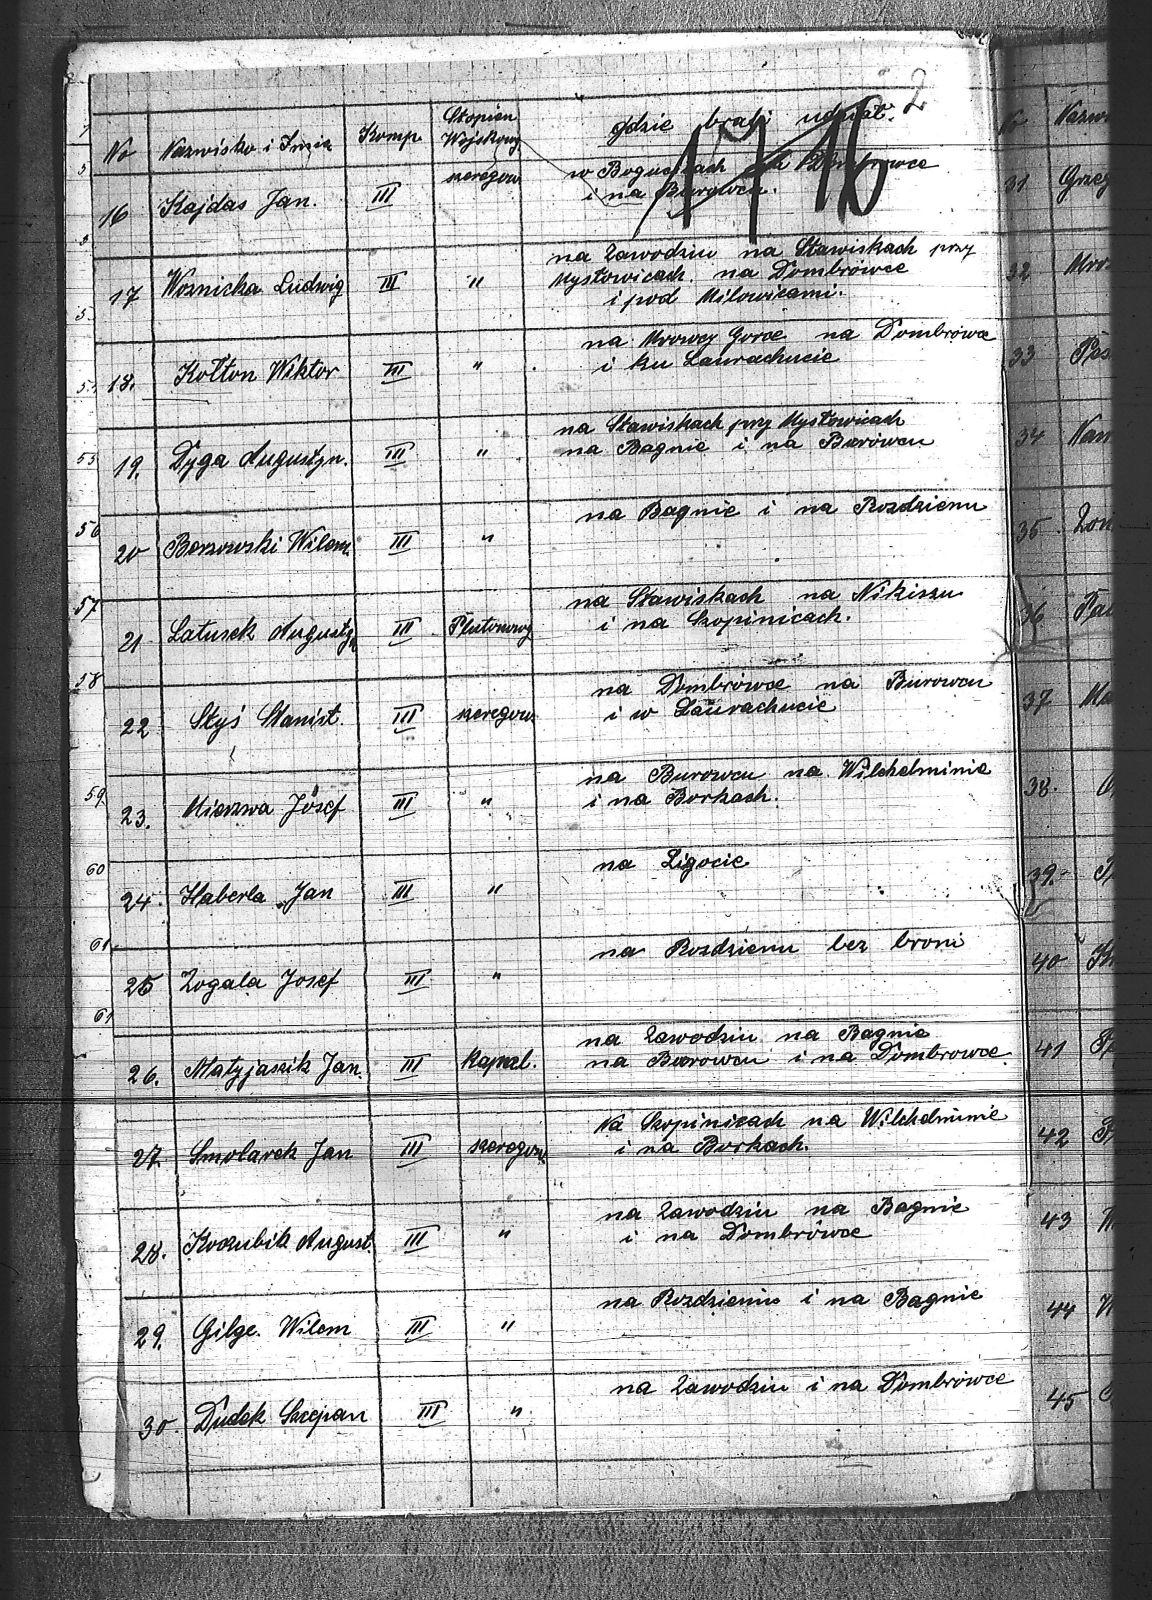 2
17 16
No Nazwisko i Imię Komp Stopień Wojskowy gdzie brali udział.
16 Kajdas Jan. III szeregow w Boguckach na Dombrowce
i na Burowcu.
17 Woznicka Ludwig III " na Zawodziu na Stawiskach przy
Mysłowicach. na Dombrówce
i pod Milowicami.
18. Kołton Wiktor III " na Mrowcy Gorce na Dombrówce
i ku Laurachucie
19. Dyga Augustyn. III " na Stawiskach przy Mysłowicach
na Bagnie i na Borówcu
20 Borzowski Wilem III " na Bagnie i na Rozdzieniu
21 Latusek Augusty III Plutonowy na Stawiskach na Nikiszu
i na Szopinicach.
22 Styś Stanist. III szeregow na Dombrówce na Burowcu
i w Laurachucie
23. Mierzwa Jósef III " na Burowcu na Wilchelminie
i na Borkach.
24. Haberla Jan III " na Ligocie
25 Zogala Josef III " na Rozdzieniu bez broni
26. Matyjaszik Jan. III Kapral. na Zawodziu na Bagnie
na Borowcu i na Dombrowce
27. Smolarek Jan III szeregow na Szopinicach na Wilchelminie
i na Borkach.
28. Koczubik August. III " na Zawodziu na Bagnie
i na Dombrówce
29. Gilge. Wilem III " na Rozdzieniu i na Bagnie
30. Dudek Szczepan III " na Zawodziu i na Dombrówce
55
56
57
58
59
60
61
61
No Nazwi
31 Grzeg
32 Mro
33
34
35
36
37
38.
39.
40
41
42
43
44
45